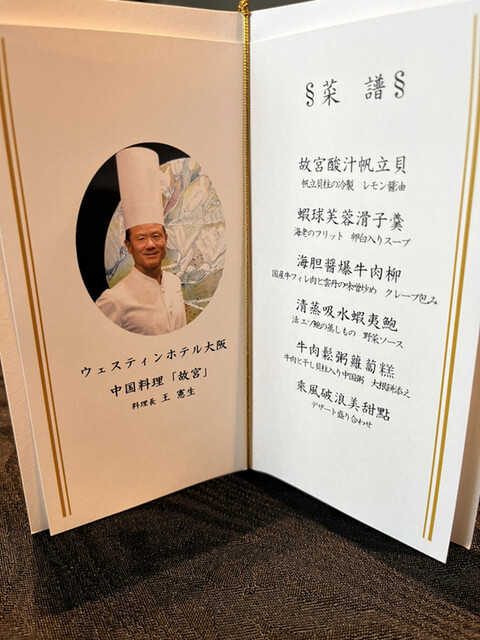 ウェスティンホテル大阪
中国料理「故宮」
料理長 王 憲生
§菜 譜§
故宮酸汁帆立貝
帆立貝柱の冷製 レモン醤油
蝦球芙蓉滑子羹
海老のフリット 卵白入りスープ
海胆醤爆牛肉柳
国産牛フィレ肉と雲丹の味噌炒め クレープ包み
清蒸吸水蝦夷鮑
活エゾ鮑の蒸しもの 野菜ソース
牛肉鬆粥蘿蔔糕
牛肉と干し貝柱入り中国粥 大根餅添え
乘風破浪美甜點
デザート盛り合わせ